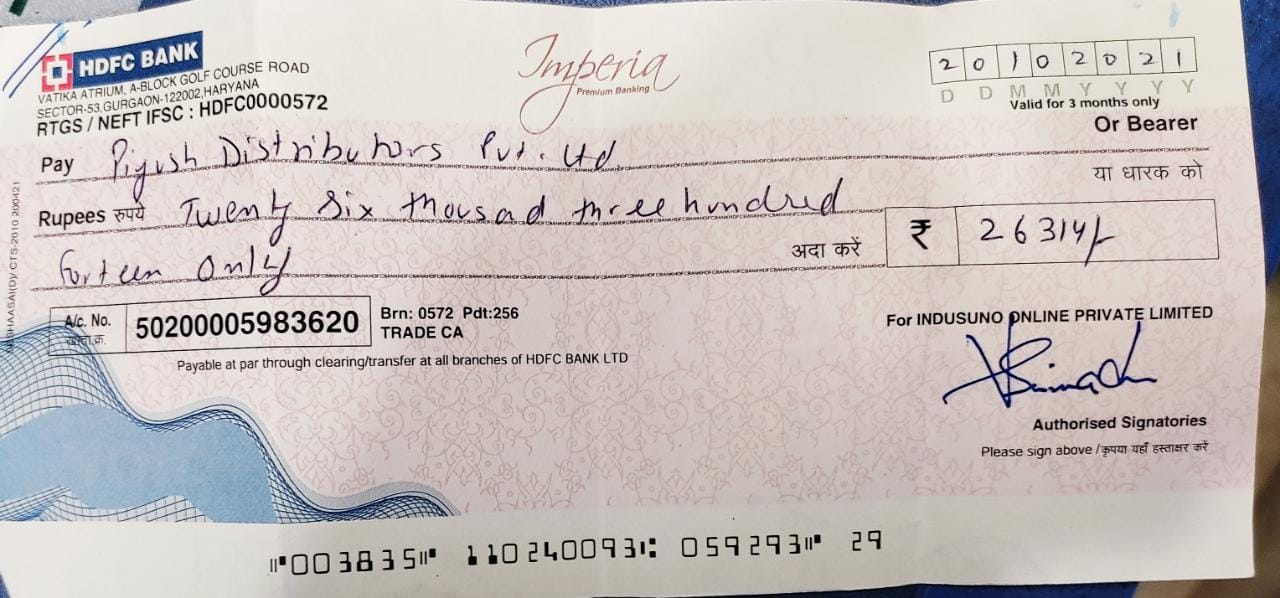 HDFC BANK
VATIKA ATRIUM, A-BLOCK GOLF COURSE ROAD
SECTOR-53, GURGAON-122002, HARYANA
RTGS / NEFT IFSC : HDFC0000572
Imperia
Premium Banking
2 0 1 0 2 0 2 1
D D M M Y Y Y Y
Valid for 3 months only
Or Bearer
Pay Piyush Distributors Pvt. Ltd
या धारक को
Rupees रुपये Twenty Six thousad three hundred
forteen Only
अदा करें ₹ 26314/-
A/c. No. 50200005983620
खाता क्र.
Brn: 0572 Pdt:256
TRADE CA
Payable at par through clearing/transfer at all branches of HDFC BANK LTD
For INDUSUNO ONLINE PRIVATE LIMITED
Authorised Signatories
Please sign above / कृपया यहाँ हस्ताक्षर करें
CTS-2010 200421
⑈003835⑈ 110240093⑆ 059293⑈ 29